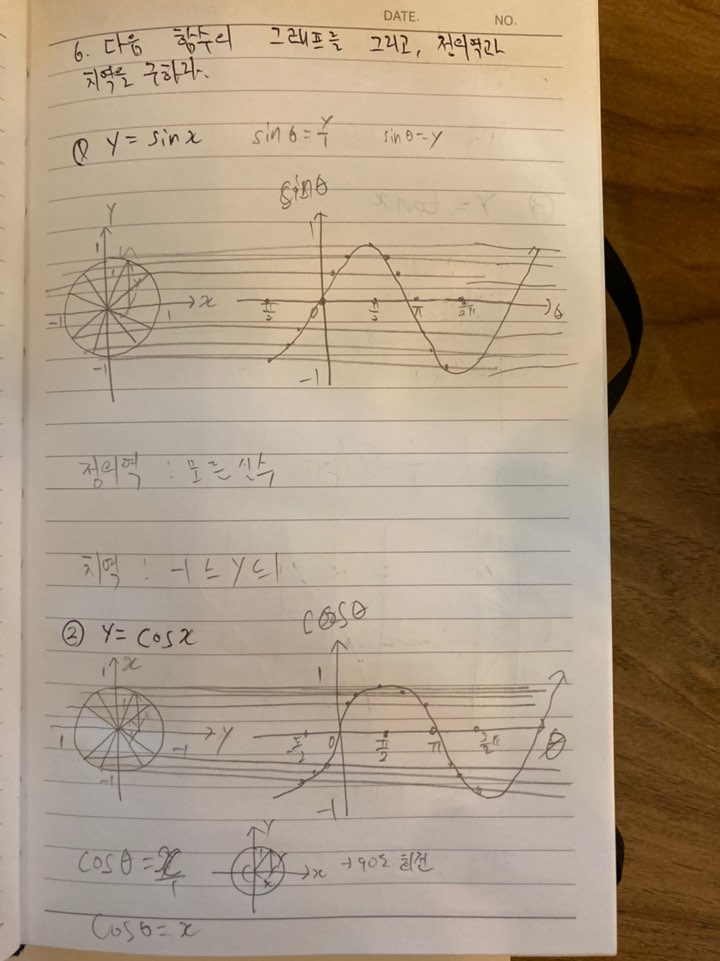 DATE. NO.
6. 다음 함수의 그래프를 그리고, 정의역과
치역을 구하라.
① y = sin x sin θ = y/1 sin θ = y
sin θ
Y
1
1
x
-1
1
-1
π/2
0
π/2
π
3/2 π
θ
-1
정의역 : 모든 실수
치역 : -1 ≤ y ≤ 1
② y = cos x
cos θ
x
1
1
y
1
-1
-1
π/2
0
π/2
π
3/2 π
θ
-1
cos θ = x/1
Y
x
→ 90도 회전
cos θ = x